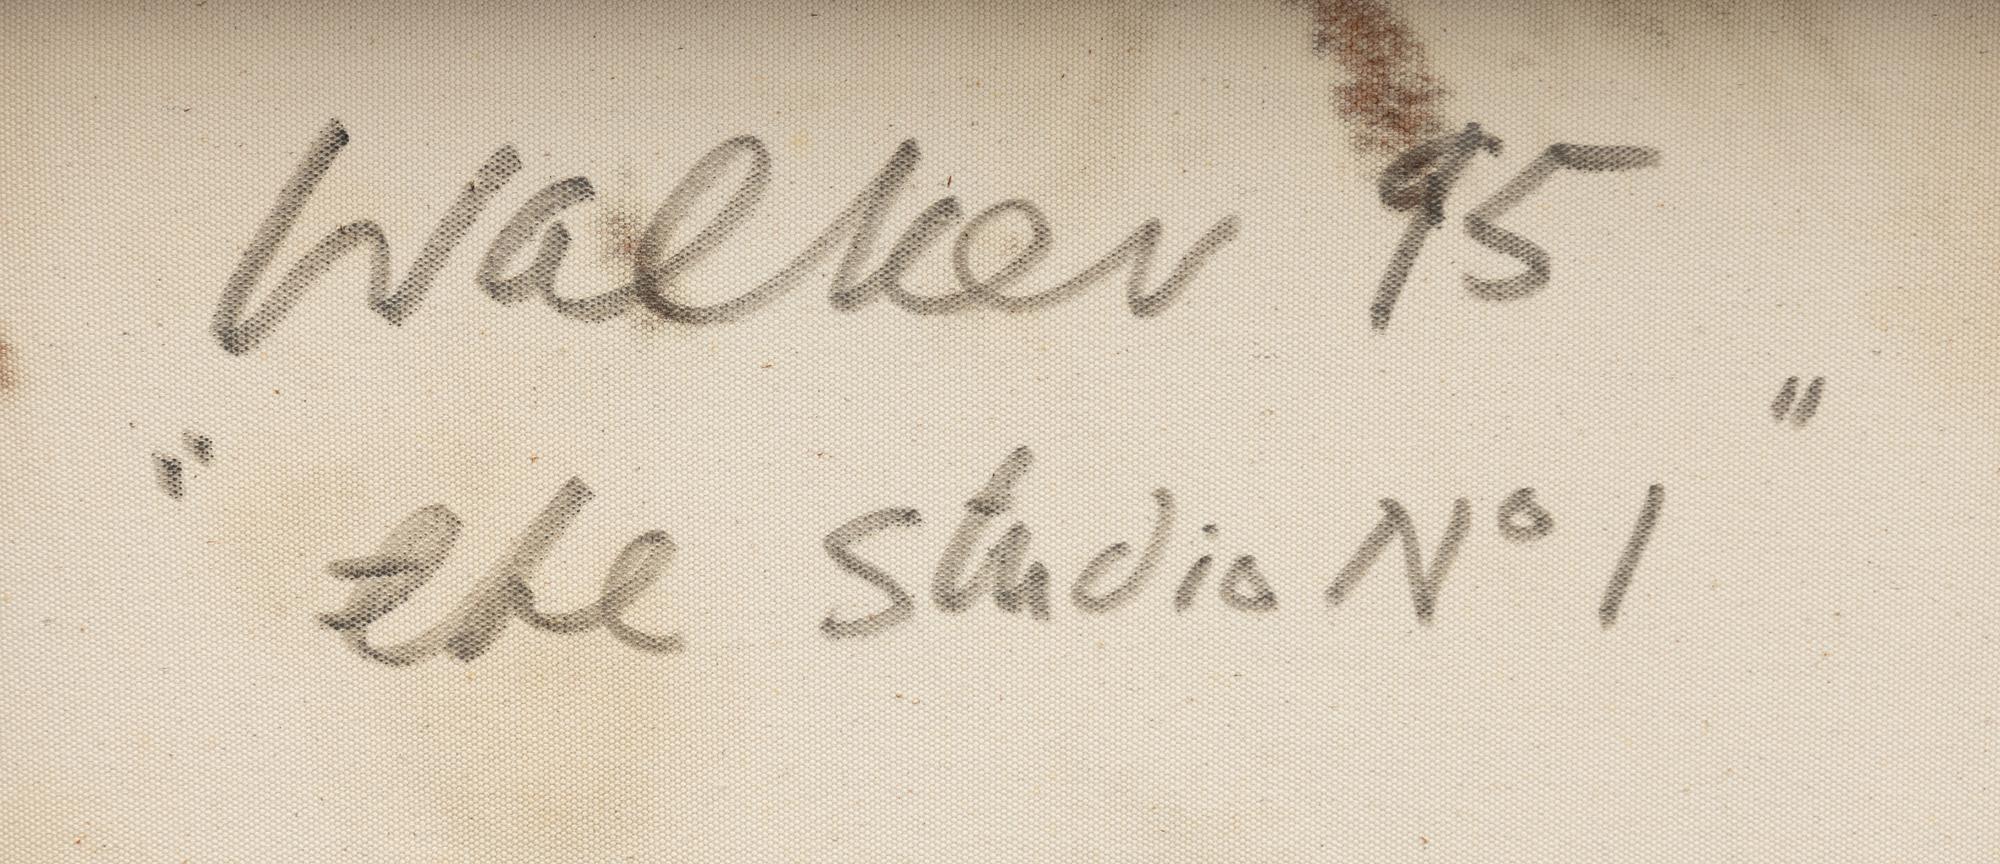 Walker 95
"The Studio Nº 1"